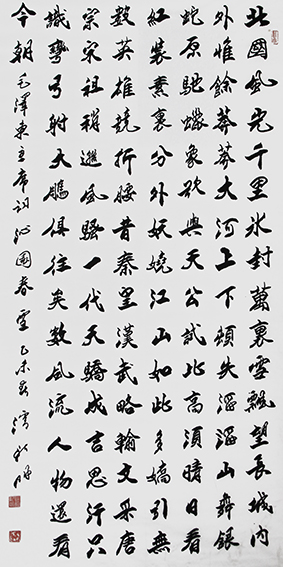 北國風光千里冰封萬裏雪飄望長城内
外惟餘莽莽大河上下頓失滔滔山舞銀
蛇原馳蠟象欲與天公試比高須晴日看
紅裝素裹分外妖嬈江山如此多嬌引無
數英雄競折腰昔秦皇漢武略輸文采唐
宗宋祖稍遜風騷一代天驕成吉思汗只
識彎弓射大鵰俱往矣數風流人物還看
今朝 毛澤東主席詞沁園春雪 乙未